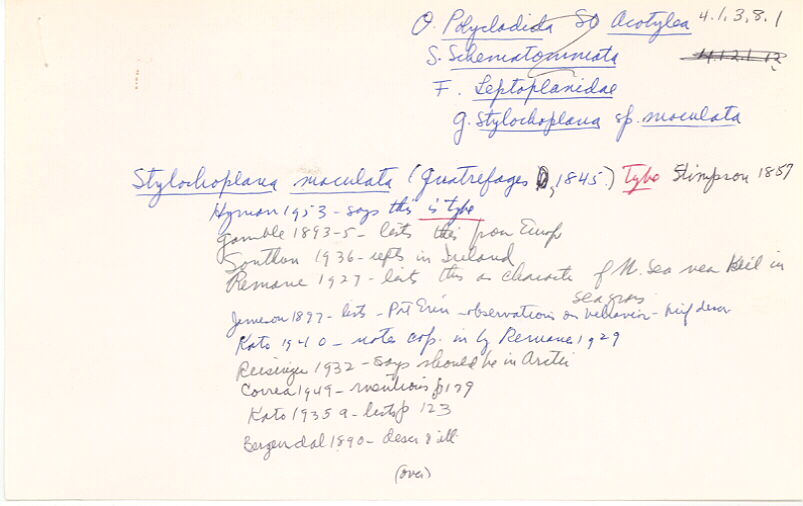 O. Polycladida SO Acotylea 4.1.3.8.1
S. Schematommata
F. Leptoplanidae
g. Stylochoplana sp. maculata
Stylochoplana maculata (Quatrefages, 1845.) Type Stimpson 1857
Hyman 1953 - says this is type
Gamble 1893-5 - lists this from Europ
Southern 1936 - repts in Ireland
Remane 1927 - lists this as characte of N. Sea near Keil in
sea grass
Jameson 1897 - lists - Prt Erin - observations on behavior - brief descr
Kato 1940 - notes cop. in by Remane 1929
Reisinger 1932 - says should be in Arctic
Correa 1949 - mentions p 179
Kato 1935a - lists p 123
Bergendal 1890 - descr & ill
(over)